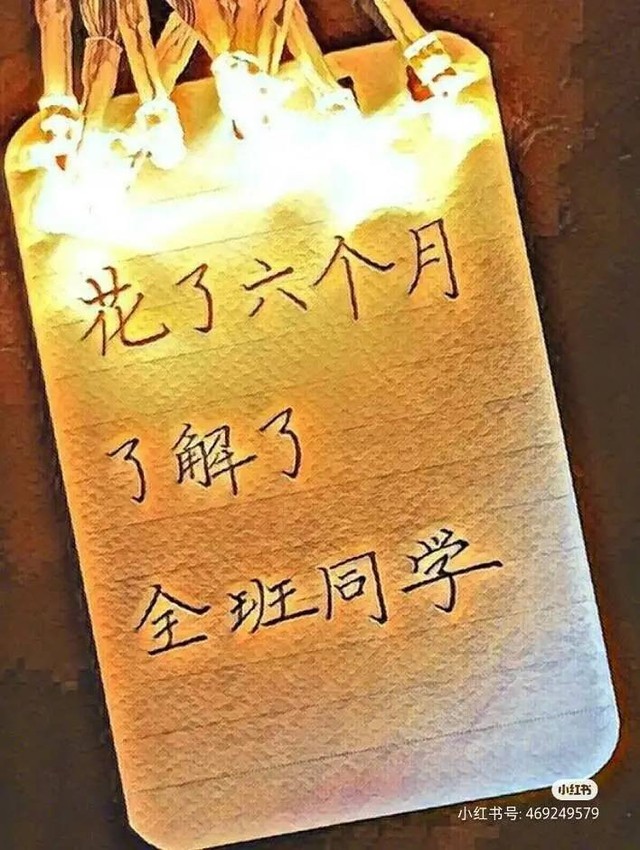 花了六个月
了解了
全班同学
小红书
小红书号: 469249579